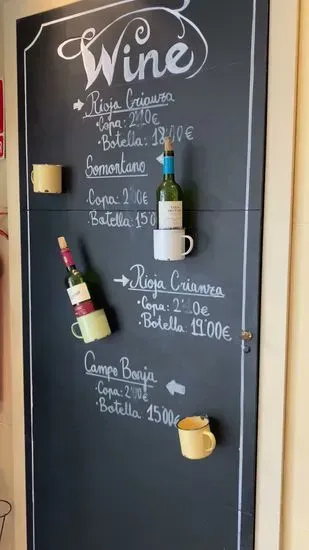 Wine
Rioja Crianza
• Copa: 2'10€
• Botella: 18'00€
Somontano
• Copa: 2'00€
• Botella: 15'0
Rioja Crianza
• Copa: 2'10€
• Botella 19'00€
Campo Borja
• Copa: 2'00€
• Botella: 15'00€